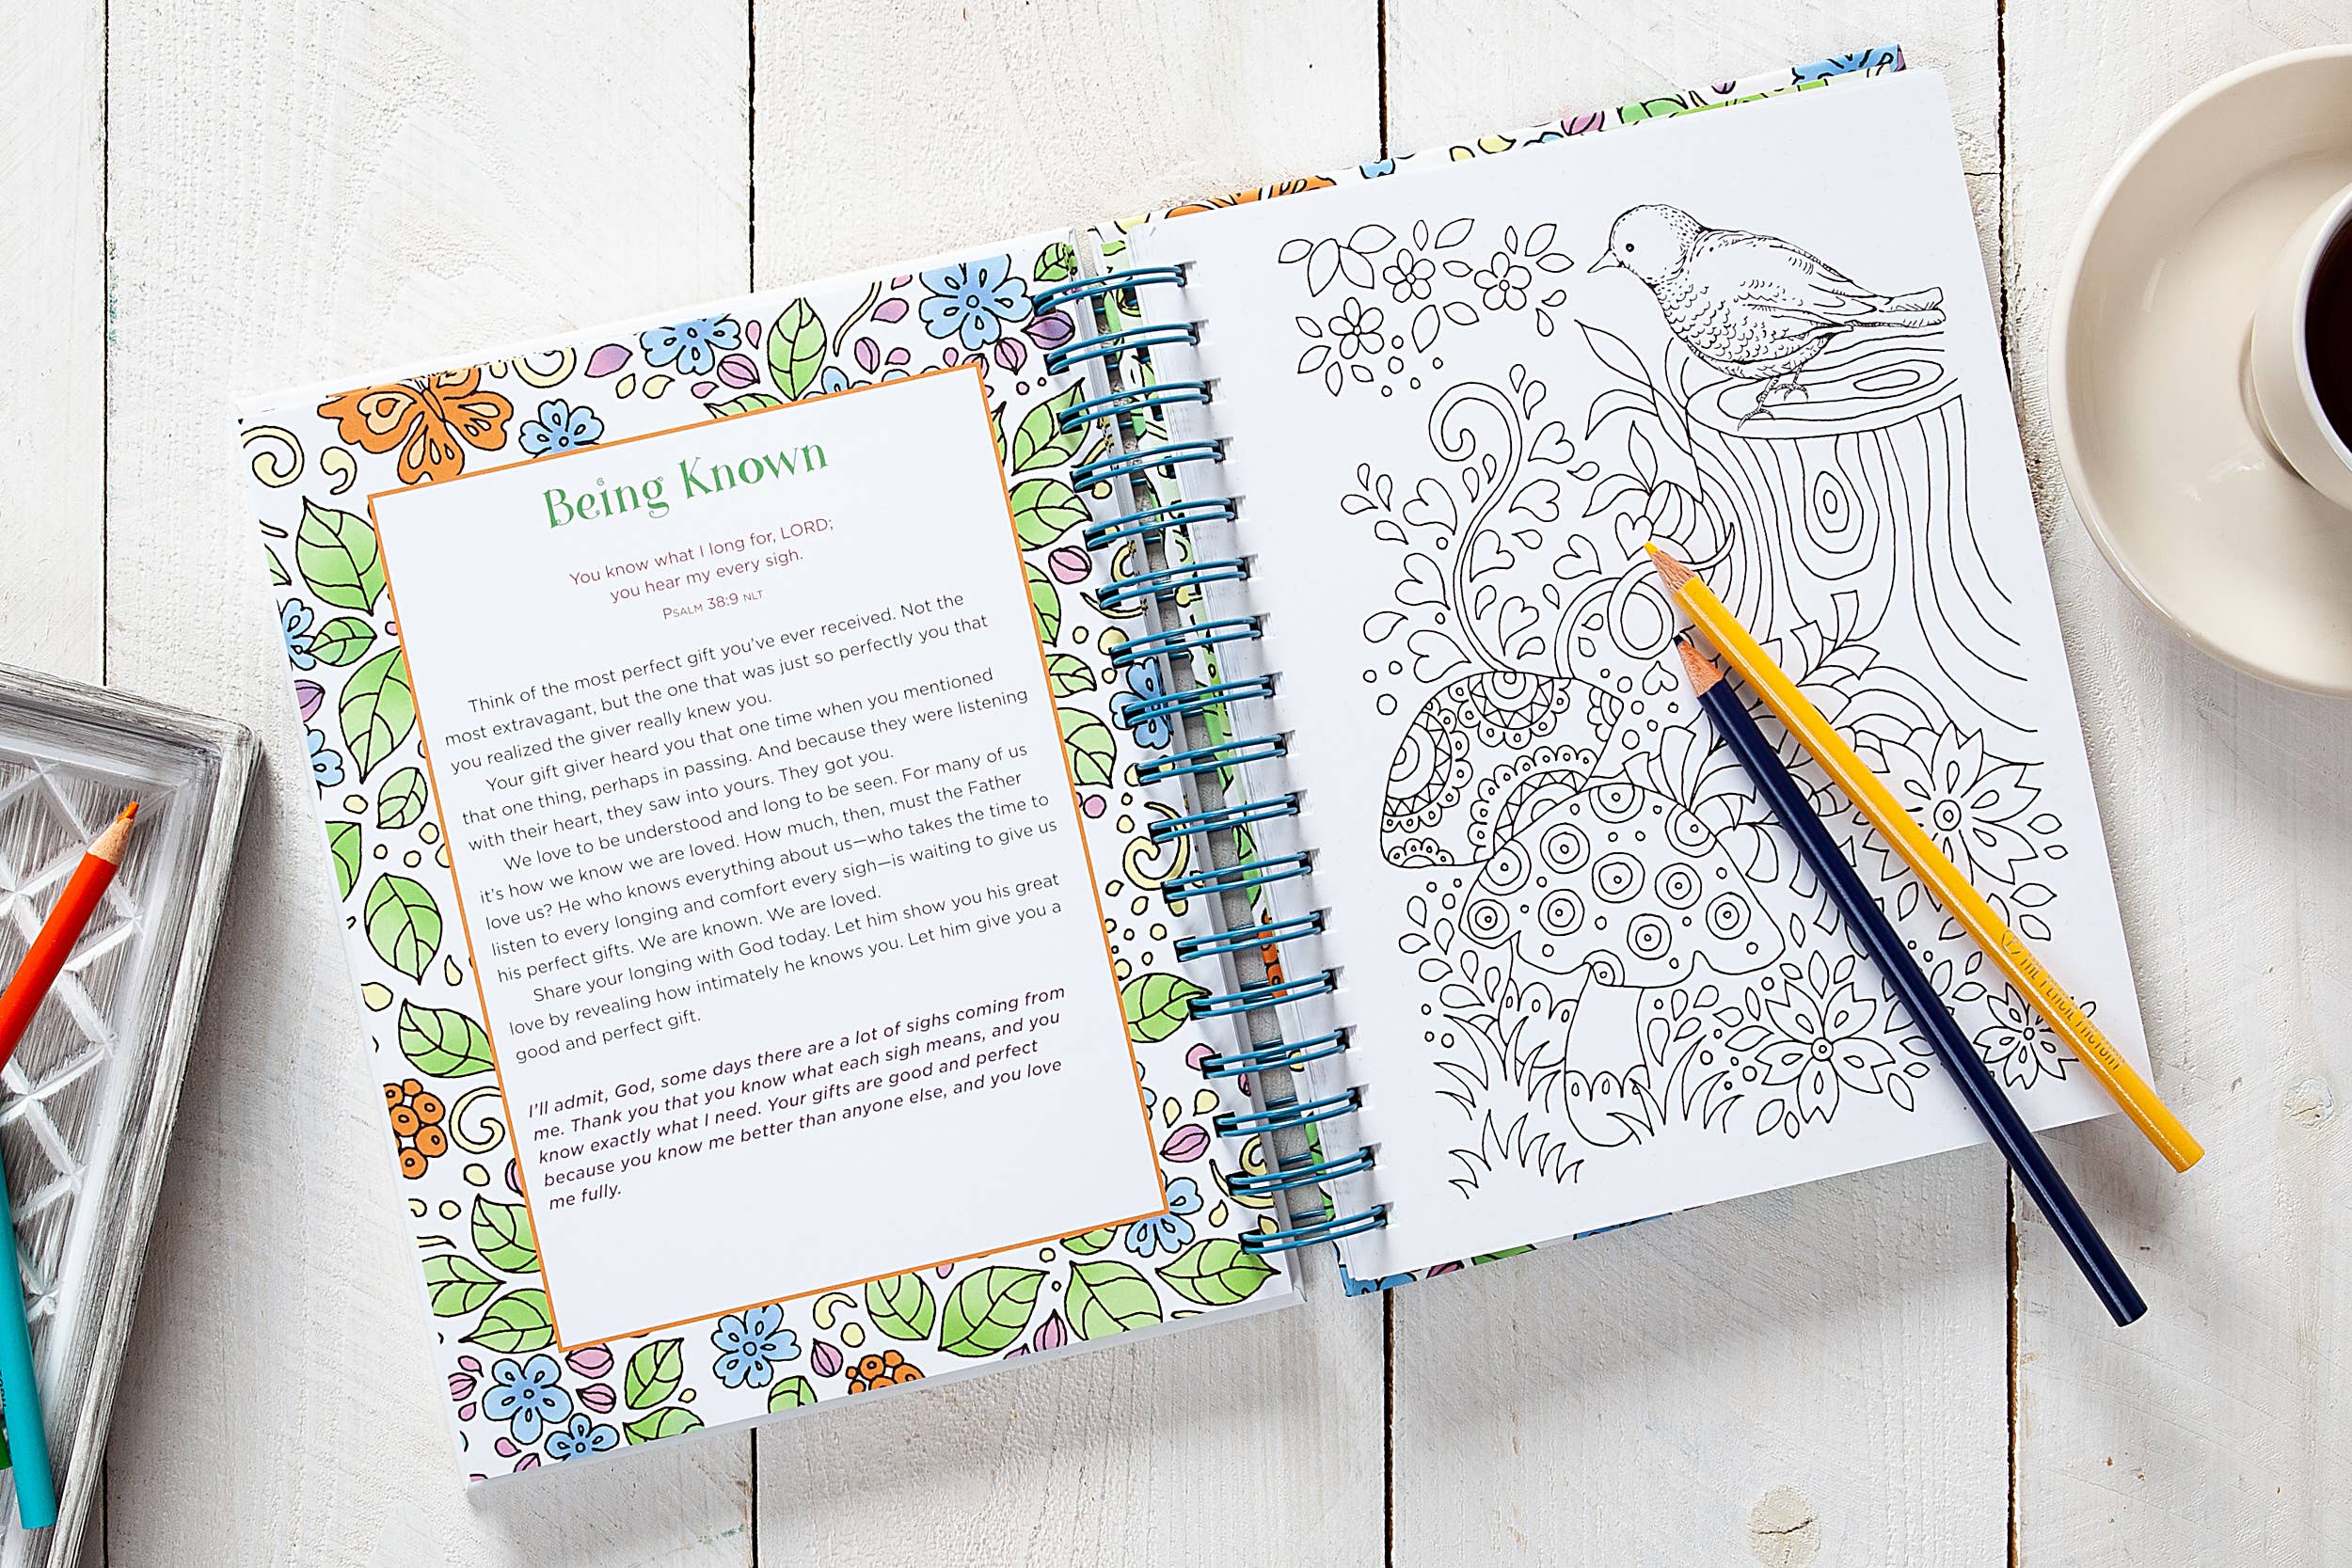 Being Known
You know what I long for, LORD;
you hear my every sigh.
PSALM 38:9 NLT
Think of the most perfect gift you've ever received. Not the
most extravagant, but the one that was just so perfectly you that
you realized the giver really knew you.
Your gift giver heard you that one time when you mentioned
that one thing, perhaps in passing. And because they were listening
with their heart, they saw into yours. They got you.
We love to be understood and long to be seen. For many of us
it's how we know we are loved. How much, then, must the Father
love us? He who knows everything about us—who takes the time to
listen to every longing and comfort every sigh—is waiting to give us
his perfect gifts. We are known. We are loved.
Share your longing with God today. Let him show you his great
love by revealing how intimately he knows you. Let him give you a
good and perfect gift.
I'll admit, God, some days there are a lot of sighs coming from
me. Thank you that you know what each sigh means, and you
know exactly what I need. Your gifts are good and perfect
because you know me better than anyone else, and you love
me fully.
THE PENCIL FACTORY